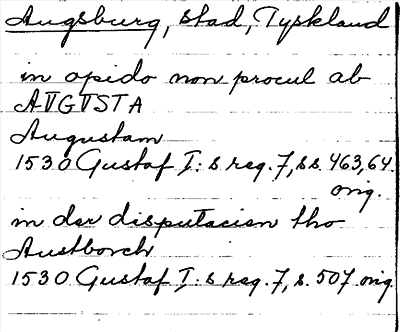 Augsburg, stad, Tyskland
in opido non procul ab
AVGVSTA
Augustam
1530 Gustaf I: s reg. 7, ss. 463, 64.
orig.
in der disputacien tho
Austborch
1530 Gustaf I: s reg. 7, s. 507 orig.